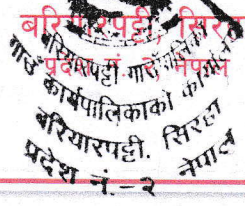 बरियारपट्टी, सिरहा
प्रदेश नं. २, नेपाल
बरियारपट्टी गाउँपालिका
गाउँ कार्यपालिकाको कार्यालय
बरियारपट्टी, सिरहा
प्रदेश नं.-२ नेपाल